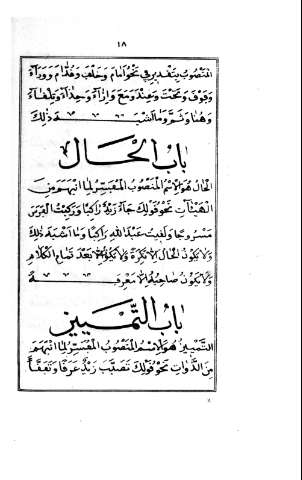 ١٨
المَنْصُوبُ بِتَقْدِيرِ فِي نَحْوُ اَمَامَ وَخَلْفَ وَقُدَّامَ وَوَرَآءَ
وَفَوْقَ وَتَحْتَ وَعِنْدَ وَمَعَ وَاِزَآءَ وَحِذَآءَ وَتِلْقَآءَ
وَهُنَا وَثَمَّ وَمَا اَشْبَهَ ذٰلِكَ
بَابُ الْحَالِ
الْحَالُ هُوَ الْاِسْمُ الْمَنْصُوبُ الْمُفَسِّرُ لِمَا انْبَهَمَ مِنَ
الْهَيْئَاتِ نَحْوُ قَوْلِكَ جَآءَ زَيْدٌ رَاكِبًا وَرَكِبْتُ الْفَرَسَ
مُسْرَجًا وَلَقِيتُ عَبْدَ اللهِ رَاكِبًا وَمَا اَشْبَهَ ذٰلِكَ
وَلَا يَكُونُ الْحَالُ اِلَّا نَكِرَةً وَلَا يَكُونُ اِلَّا بَعْدَ تَمَامِ الْكَلَامِ
وَلَا يَكُونُ صَاحِبُهَا اِلَّا مَعْرِفَةً
بَابُ التَّمْيِيزِ
التَّمْيِيزُ هُوَ الْاِسْمُ الْمَنْصُوبُ الْمُفَسِّرُ لِمَا انْبَهَمَ
مِنَ الذَّوَاتِ نَحْوُ قَوْلِكَ تَصَبَّبَ زَيْدٌ عَرَقًا وَتَفَقَّأَ